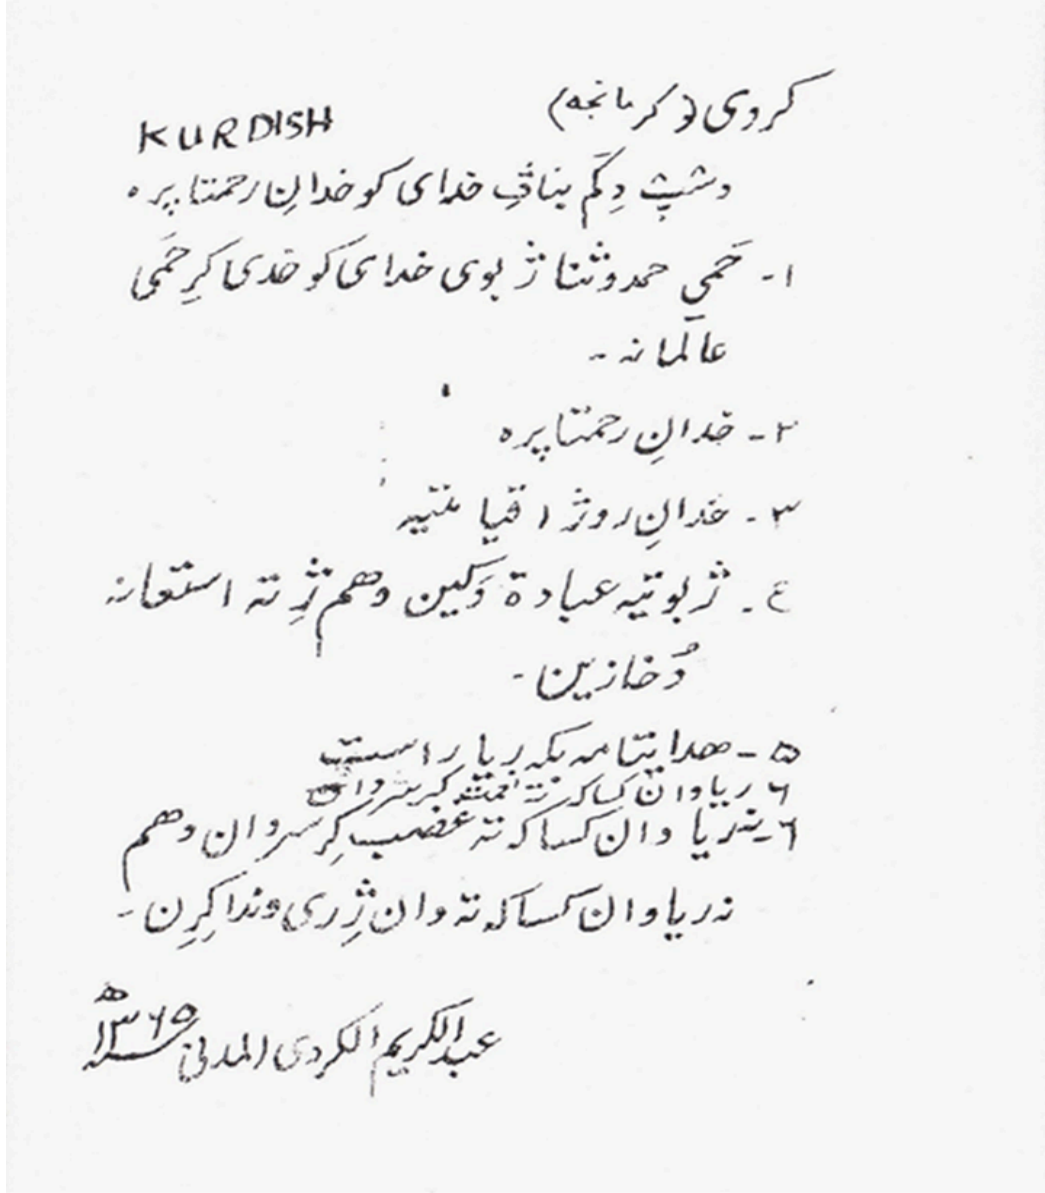 كردی (كرمانجه) KURDISH
دشپث دِكَم بناڤِ خدای كو خدانِ رحمتا پره
۱- حَمیِ حمدوثنا ژ بوی خدای كو خدی كرِ حَمَی
عالَمانه -
۲- خدانِ رحمتا پره
۳- خدانِ روژا قیامتیه
٤- ژبوتیه عبادة دَكین وهم ژِته استعانه
دُخازین -
۵- هدایتا مه بكه ریا راست
۶ ریا وان كسا كه ته كر سروان
۶- نه ریا وان كسا كه ته غضب كِر سروان وهم
نه ریا وان كسا كه ته وان ژِ ری وندا كِرِن -
عبدالكریم الكردی المدنی سنه ۱۳۶۵ ه